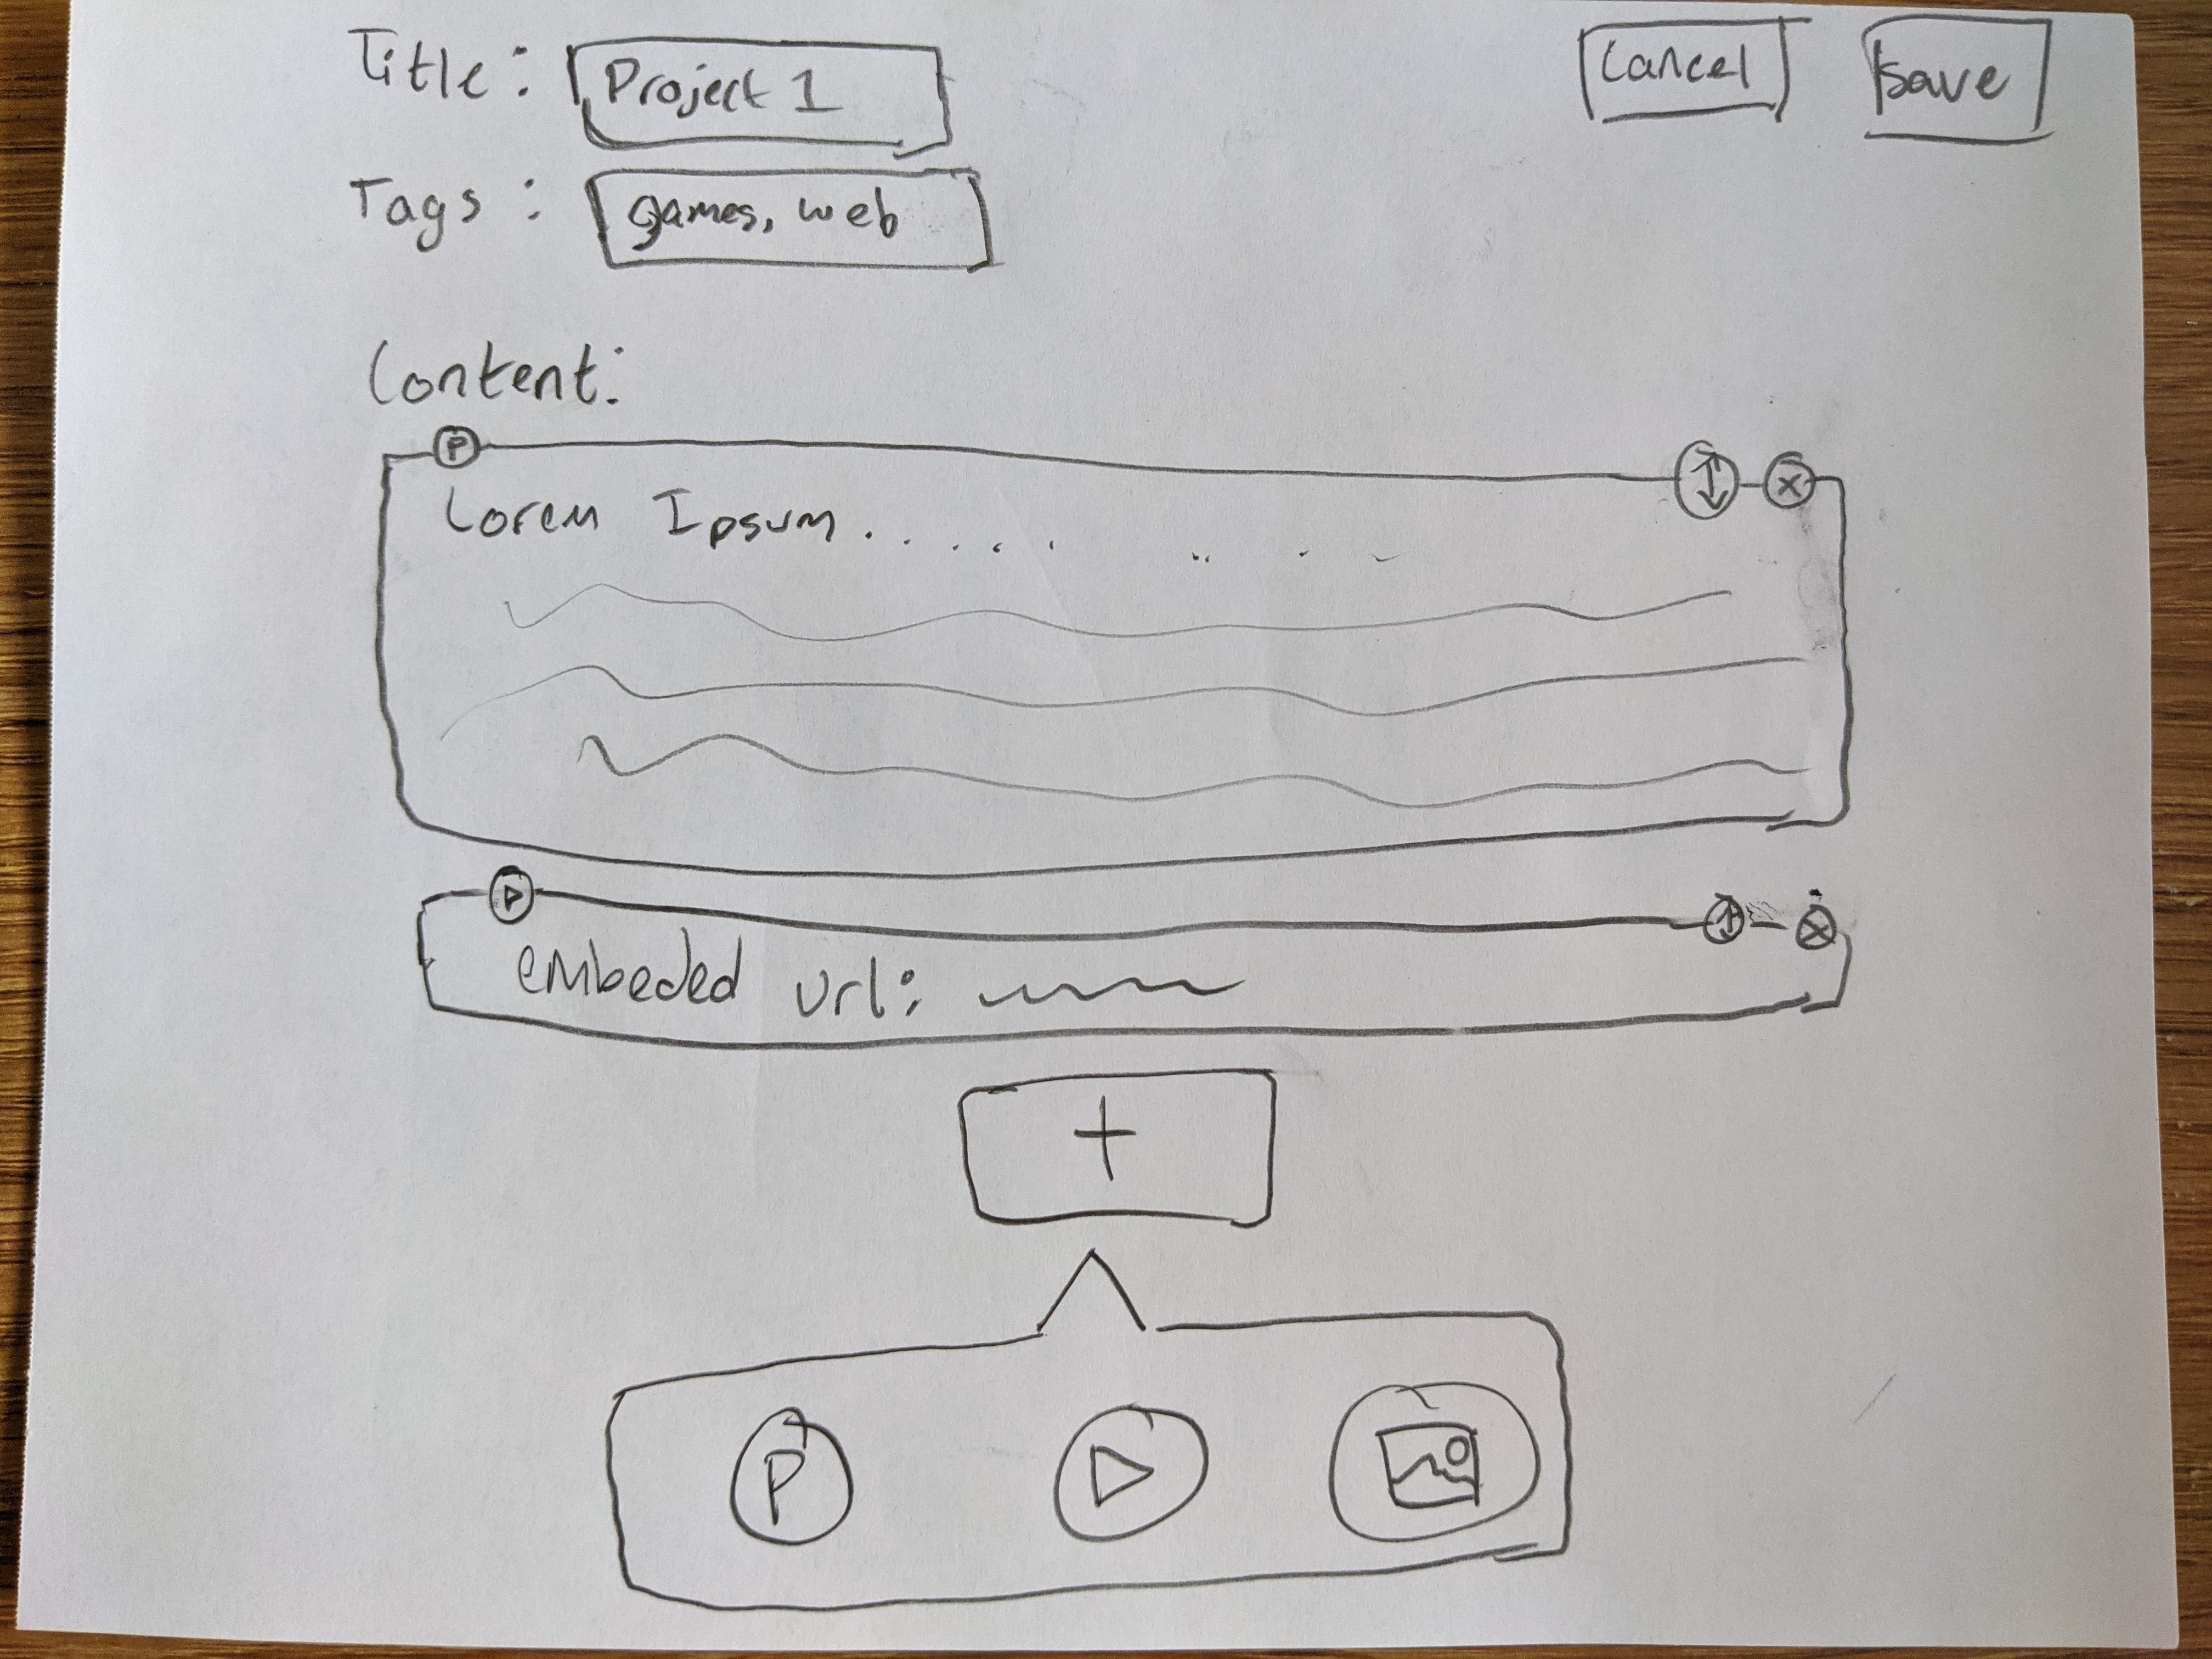 Title: Project 1 Cancel Save
Tags: games, web
Content:
P
Lorem Ipsum.........
embeded url:
+
P